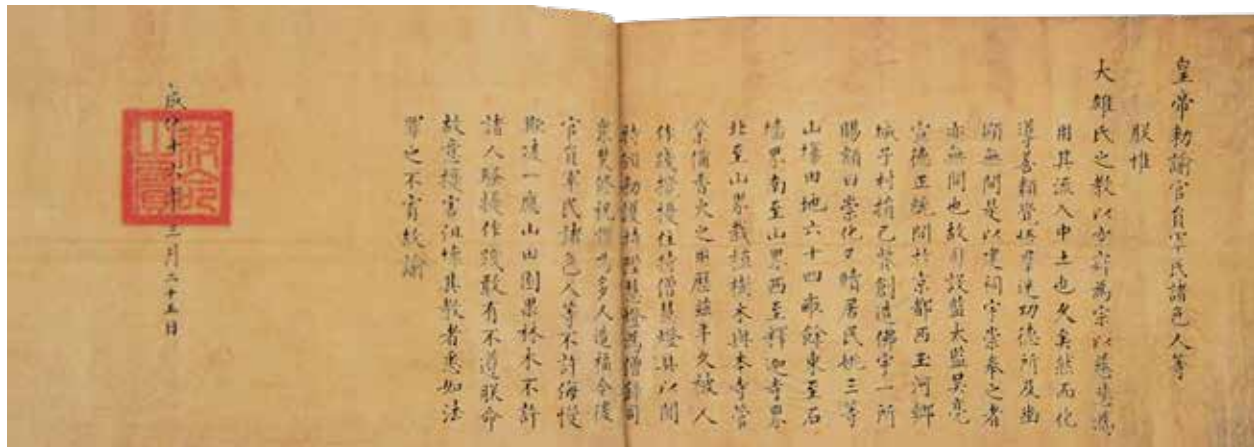 皇帝勅諭官員軍民諸色人等
朕惟
大雄氏之教以空寂為宗以慈悲為
用其流入中土也久矣然而化
導善類覺悟羣迷功德所及幽
顯無間是以建祠宇崇奉之者
亦無間也故司設監太監吳亮
宣德正統間於京都西玉河鄉
城子村捐己貲創造佛宇一所
賜額曰崇化又贖居民姚三等
山場田地六十四畝餘東至石
墻界南至山界西至釋迦寺界
北至山界栽植樹木與本寺管
業備香火之用歷茲年久被人
作踐搭擾住持僧慧燈具以聞
特頒勅護持慧燈為僧錄司
衆焚修祝多人造福今後
官員軍民諸色人等不許侮慢
欺凌一應山田園果林木不許
諸人騷擾作踐敢有不遵朕命
故意擾害沮壞其教者悉如法
罪之不宥故諭
成化十六年三月二十五日
敕命之寶